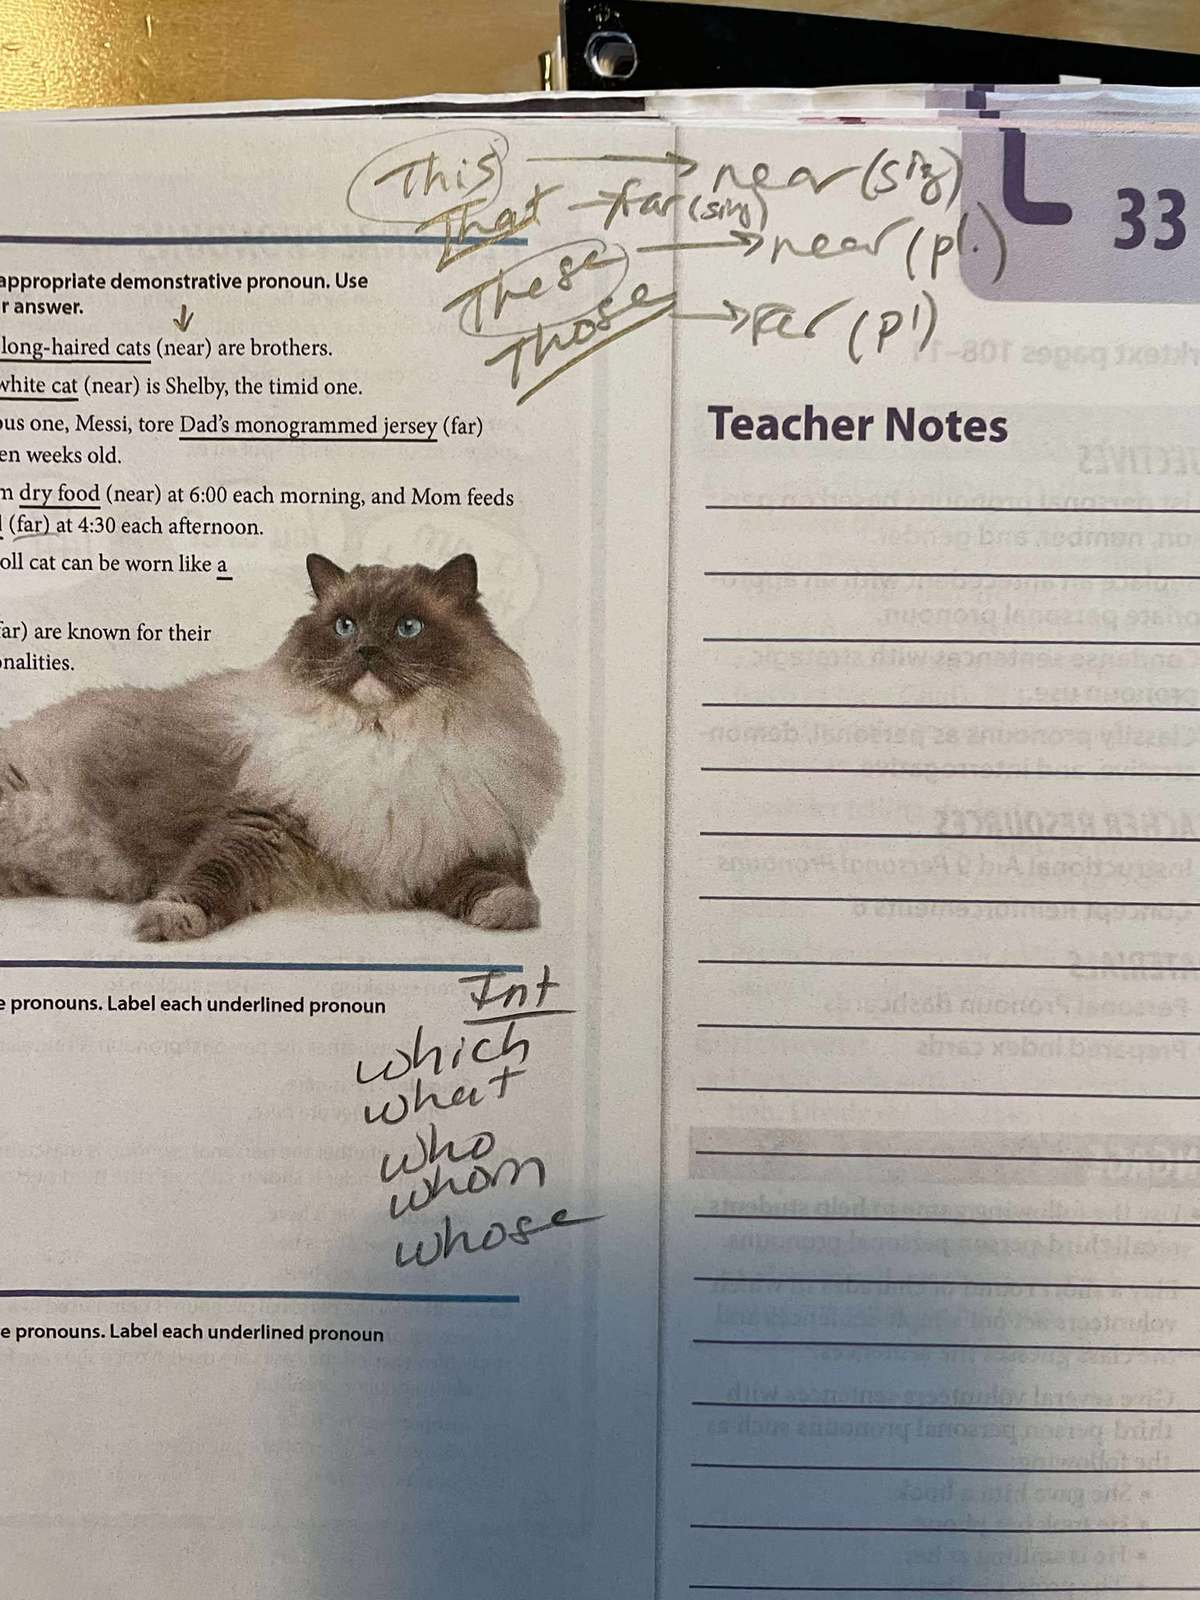 This → near (sig)
That → far (sing)
These → near (pl.)
Those → far (pl)
33
appropriate demonstrative pronoun. Use
r answer.
long-haired cats (near) are brothers.
white cat (near) is Shelby, the timid one.
ous one, Messi, tore Dad's monogrammed jersey (far)
en weeks old.
m dry food (near) at 6:00 each morning, and Mom feeds
(far) at 4:30 each afternoon.
oll cat can be worn like a
far) are known for their
onalities.
Int
e pronouns. Label each underlined pronoun
which
what
who
whom
whose
e pronouns. Label each underlined pronoun
Teacher Notes